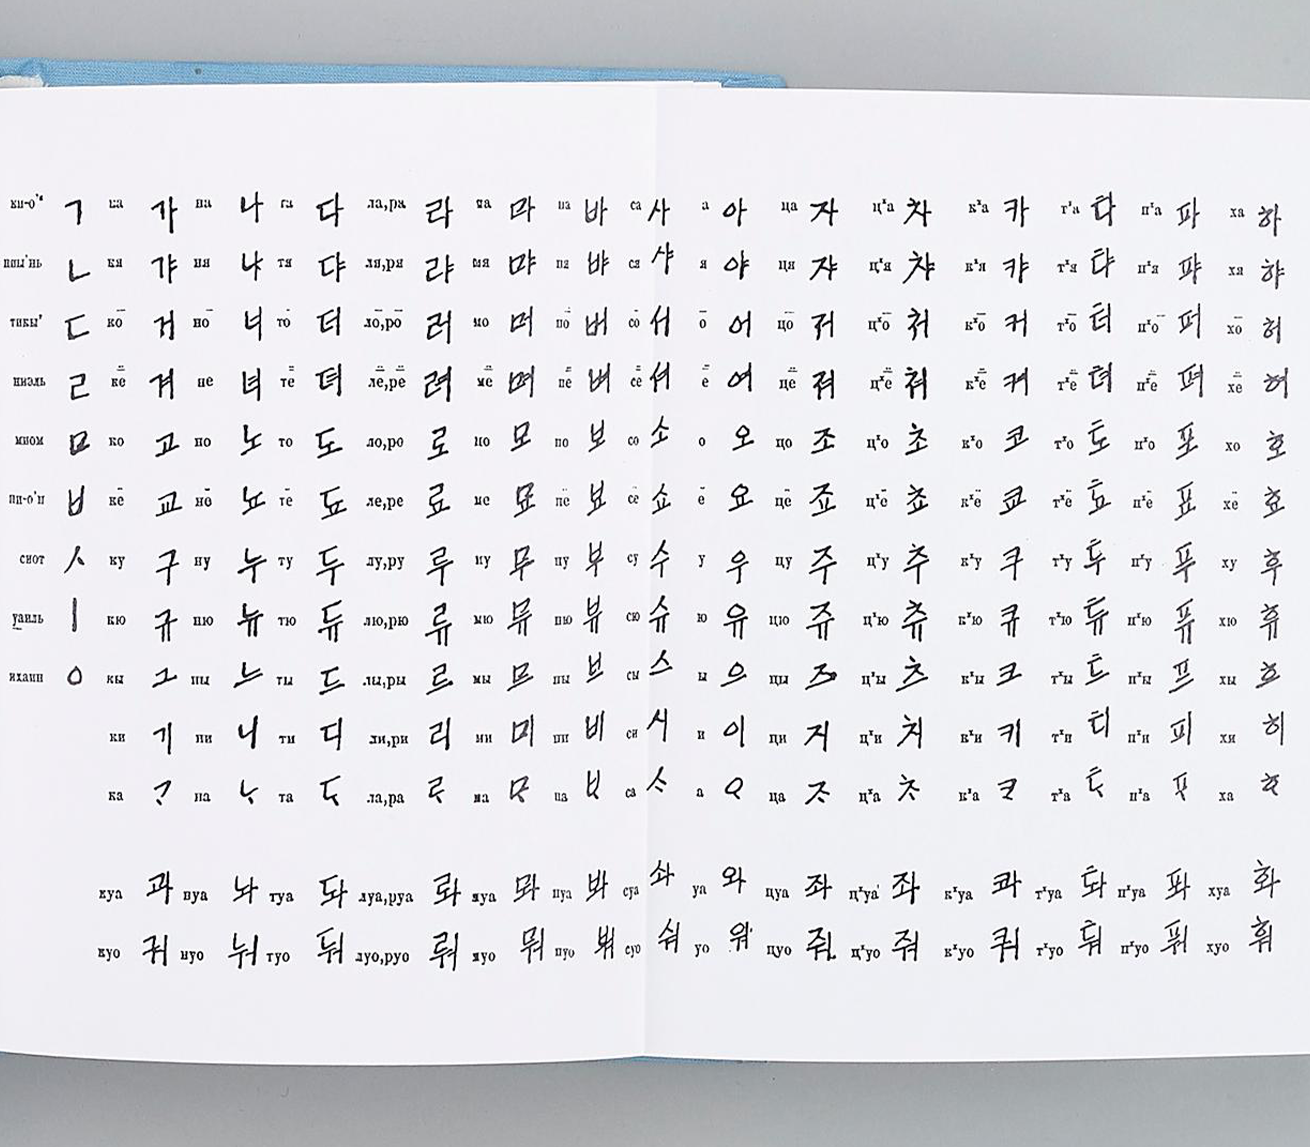 ки-о'к ㄱ ка 가 на 나 та 다 ла,ра 라 ма 마 па 바 са 사 а 아 ца 자 цᵡа 차 кᵡа 카 тᵡа 타 пᵡа 파 ха 하
ㄴ кя 갸 ня 냐 тя 댜 ля,ря 랴 мя 먀 пя 뱌 ся 샤 я 야 ця 쟈 цᵡя 챠 кᵡя 캬 тᵡя 탸 пᵡя 퍄 хя 햐
тикы' ㄷ ко̄ 거 но̄ 너 то̄ 더 ло̄,ро̄ 러 мо 머 по̄ 버 со̄ 서 о̄ 어 цо̄ 저 цᵡо̄ 처 кᵡо̄ 커 тᵡо̄ 터 пᵡо̄ 퍼 хо̄ 허
ниэль ㄹ кё̄ 겨 не 녀 тё̄ 뎌 лё̄,рё̄ 려 мё̄ 며 пё̄ 벼 сё̄ 셔 ё̄ 여 цё̄ 져 цᵡё̄ 쳐 кᵡё̄ 켜 тᵡё̄ 텨 пᵡё̄ 펴 хё̄ 혀
миом ㅁ ко 고 но 노 то 도 ло,ро 로 мо 모 по 보 со 소 о 오 цо 조 цᵡо 초 кᵡо 코 тᵡо 토 пᵡо 포 хо 호
пи-о'п ㅂ кё 교 нё 뇨 тё 됴 ле,ре 료 ме 묘 пё 뵤 сё 쇼 ё 요 цё 죠 цᵡё 쵸 кᵡё 쿄 тᵡё 툐 пᵡё 표 хё 효
сиот ㅅ ку 구 ну 누 ту 두 лу,ру 루 му 무 пу 부 су 수 у 우 цу 주 цᵡу 추 кᵡу 쿠 тᵡу 투 пᵡу 푸 ху 후
уаиль ㅣ кю 규 ню 뉴 тю 듀 лю,рю 류 мю 뮤 пю 뷰 сю 슈 ю 유 цю 쥬 цᵡю 츄 кᵡю 큐 тᵡю 튜 пᵡю 퓨 хю 휴
ихаин ㅇ кы 그 ны 느 ты 드 лы,ры 르 мы 므 пы 브 сы 스 ы 으 цы 즈 цᵡы 츠 кᵡы 크 тᵡы 트 пᵡы 프 хы 흐
ки 기 ни 니 ти 디 ли,ри 리 ми 미 пи 비 си 시 и 이 ци 지 цᵡи 치 кᵡи 키 тᵡи 티 пᵡи 피 хи 히
ка ᄀᆞ на ᄂᆞ та ᄃᆞ ла,ра ᄅᆞ ма ᄆᆞ па ᄇᆞ са ᄉᆞ а ᄋᆞ ца ᄌᆞ цᵡа ᄎᆞ кᵡа ᄏᆞ тᵡа ᄐᆞ пᵡа ᄑᆞ ха ᄒᆞ
куа 과 нуа 놔 туа 돠 луа,руа 롸 муа 뫄 пуа 봐 суа 솨 уа 와 цуа 좌 цᵡуа 좌 кᵡуа 콰 тᵡуа 톼 пᵡуа 퐈 хуа 화
куо 궈 нуо 눠 туо 둬 луо,руо 뤄 муо 뭐 пуо 붜 суо 숴 уо 워 цуо 줘 цᵡуо 줘 кᵡуо 쿼 тᵡуо 퉈 пᵡуо 풔 хуо 훠